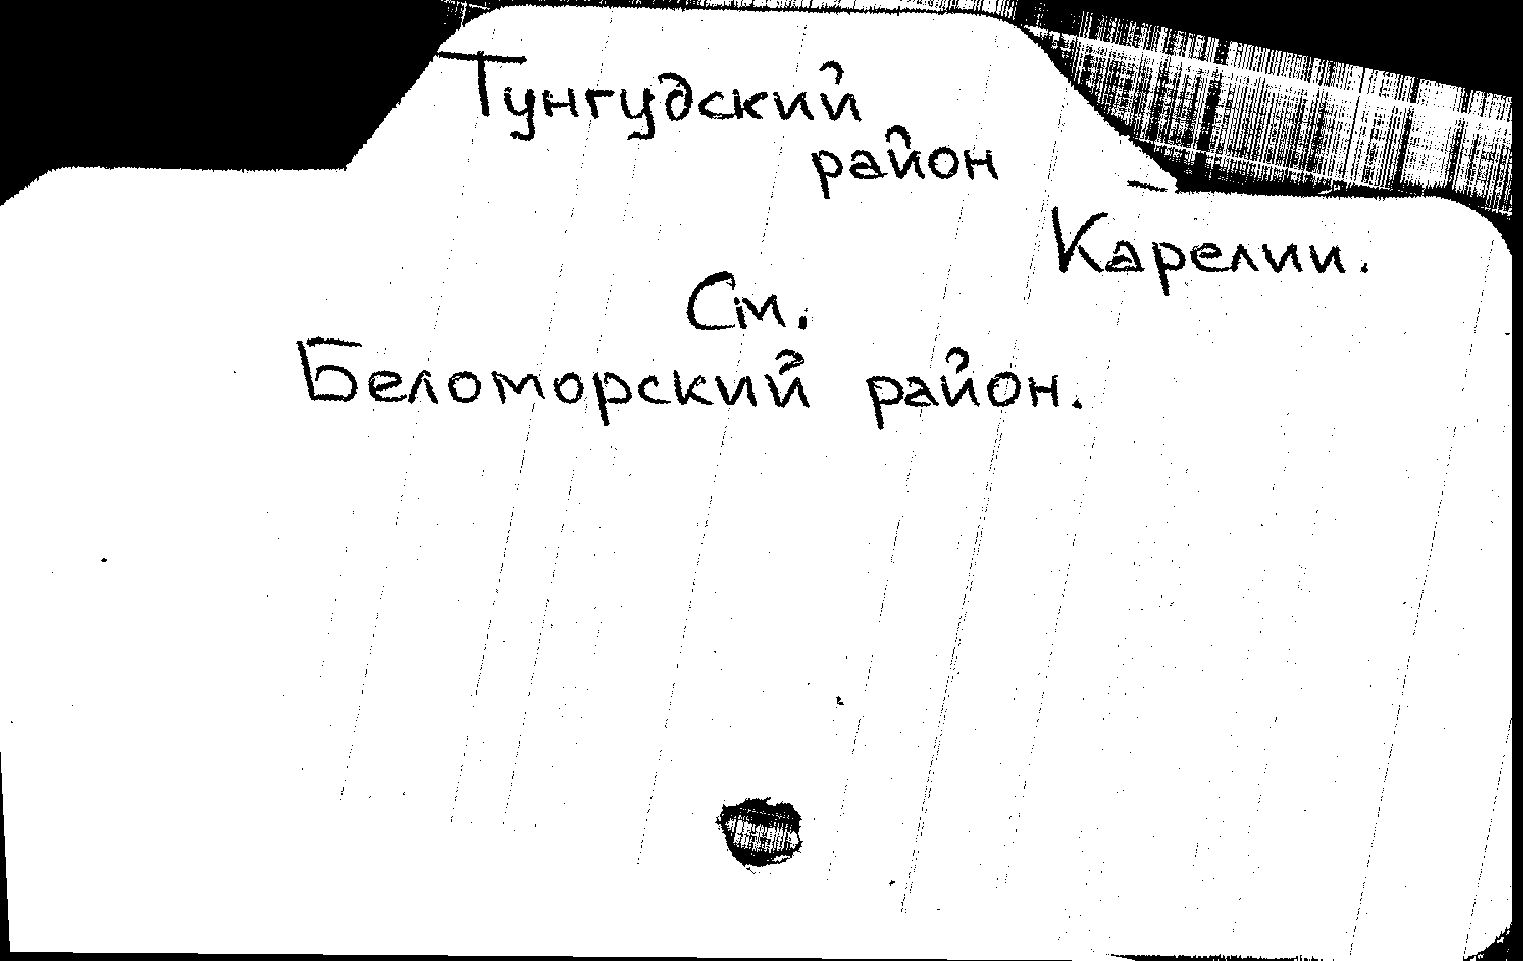 Тунгудский
район
Карелии.
См.
Беломорский район.